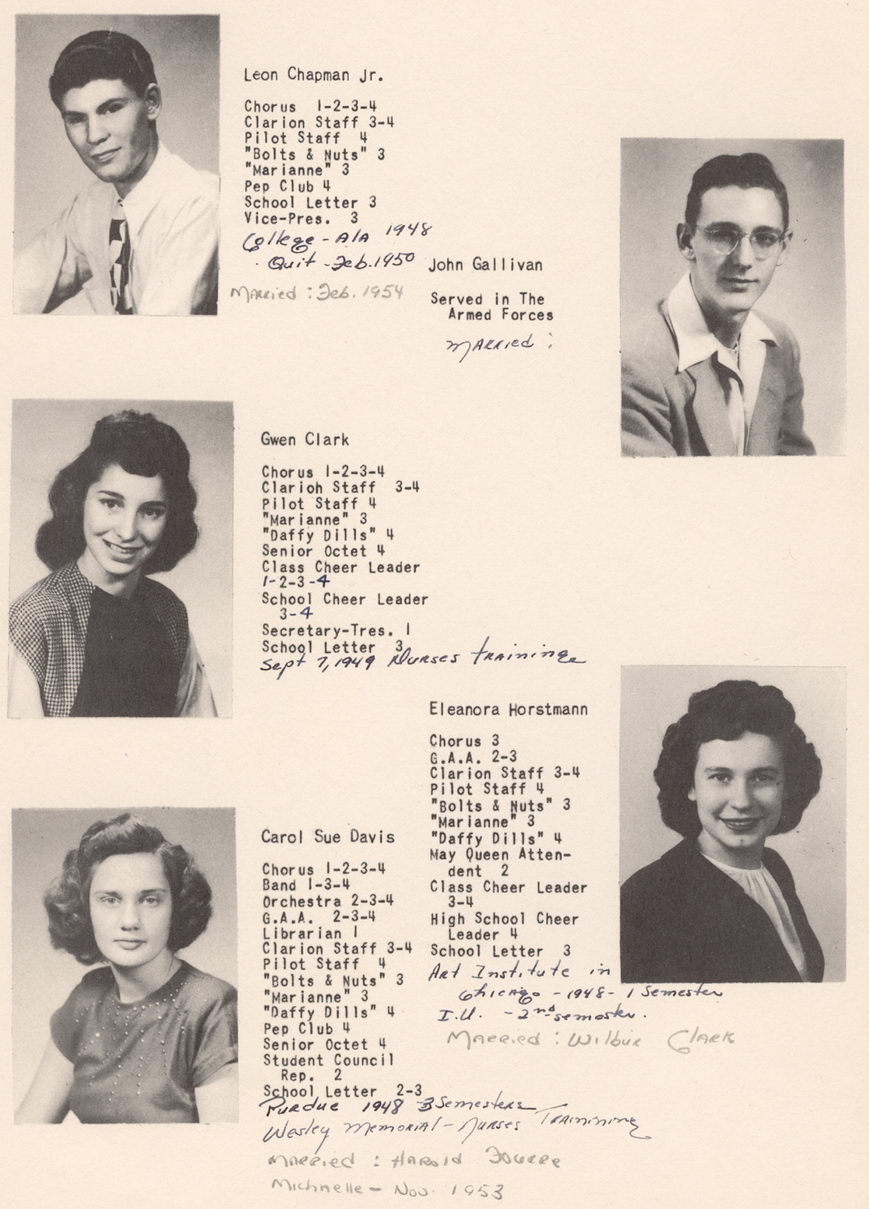 Leon Chapman Jr.
Chorus 1-2-3-4
Clarion Staff 3-4
Pilot Staff 4
"Bolts & Nuts" 3
"Marianne" 3
Pep Club 4
School Letter 3
Vice-Pres. 3
College - Ala 1948
Quit - Feb. 1950
Married: Feb. 1954
John Gallivan
Served in The
Armed Forces
Married:
Gwen Clark
Chorus 1-2-3-4
Clarioh Staff 3-4
Pilot Staff 4
"Marianne" 3
"Daffy Dills" 4
Senior Octet 4
Class Cheer Leader
1-2-3-4
School Cheer Leader
3-4
Secretary-Tres. 1
School Letter 3
Sept 7, 1949 Nurses Training
Eleanora Horstmann
Chorus 3
G.A.A. 2-3
Clarion Staff 3-4
Pilot Staff 4
"Bolts & Nuts" 3
"Marianne" 3
"Daffy Dills" 4
May Queen Atten-
dent 2
Class Cheer Leader
3-4
High School Cheer
Leader 4
School Letter 3
Art Institute in
Chicago - 1948 - 1 Semester
I.U. - 2nd semester.
Married: Wilbur Clark
Carol Sue Davis
Chorus 1-2-3-4
Band 1-3-4
Orchestra 2-3-4
G.A.A. 2-3-4
Librarian 1
Clarion Staff 3-4
Pilot Staff 4
"Bolts & Nuts" 3
"Marianne" 3
"Daffy Dills" 4
Pep Club 4
Senior Octet 4
Student Council
Rep. 2
School Letter 2-3
Purdue 1948 3 Semesters
Wesley Memorial - Nurses Trainining
Married: Harold
Michaelle - Nov. 1953